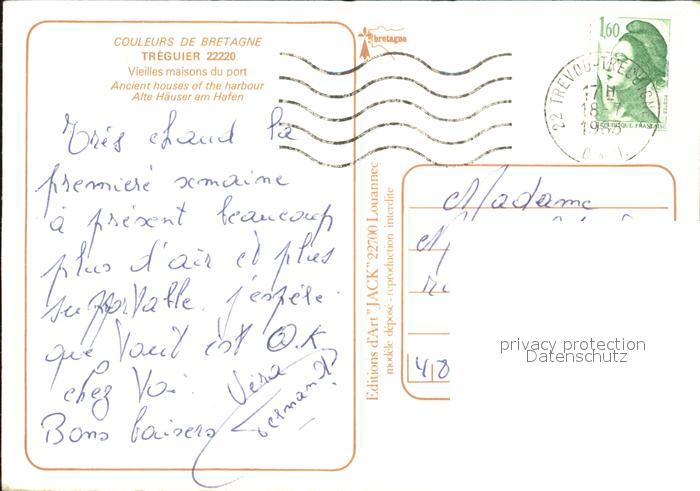 COULEURS DE BRETAGNE
TRÉGUIER 22220
Vieilles maisons du port
Ancient houses of the harbour
Alte Häuser am Hafen
bretagne
1,60
22 TREVOU-TREGUIGNEC
17 H
18
198
Très chaud la
premiere semaine
à présent beaucoup
plus d'air et plus
supportable. j'espère
que tout est O.K
chez toi. Véra
Bons baisers Fernand
Editions d'Art "JACK" 22700 Louannec
modèle déposé - reproduction interdite
Madame
48
privacy protection
Datenschutz